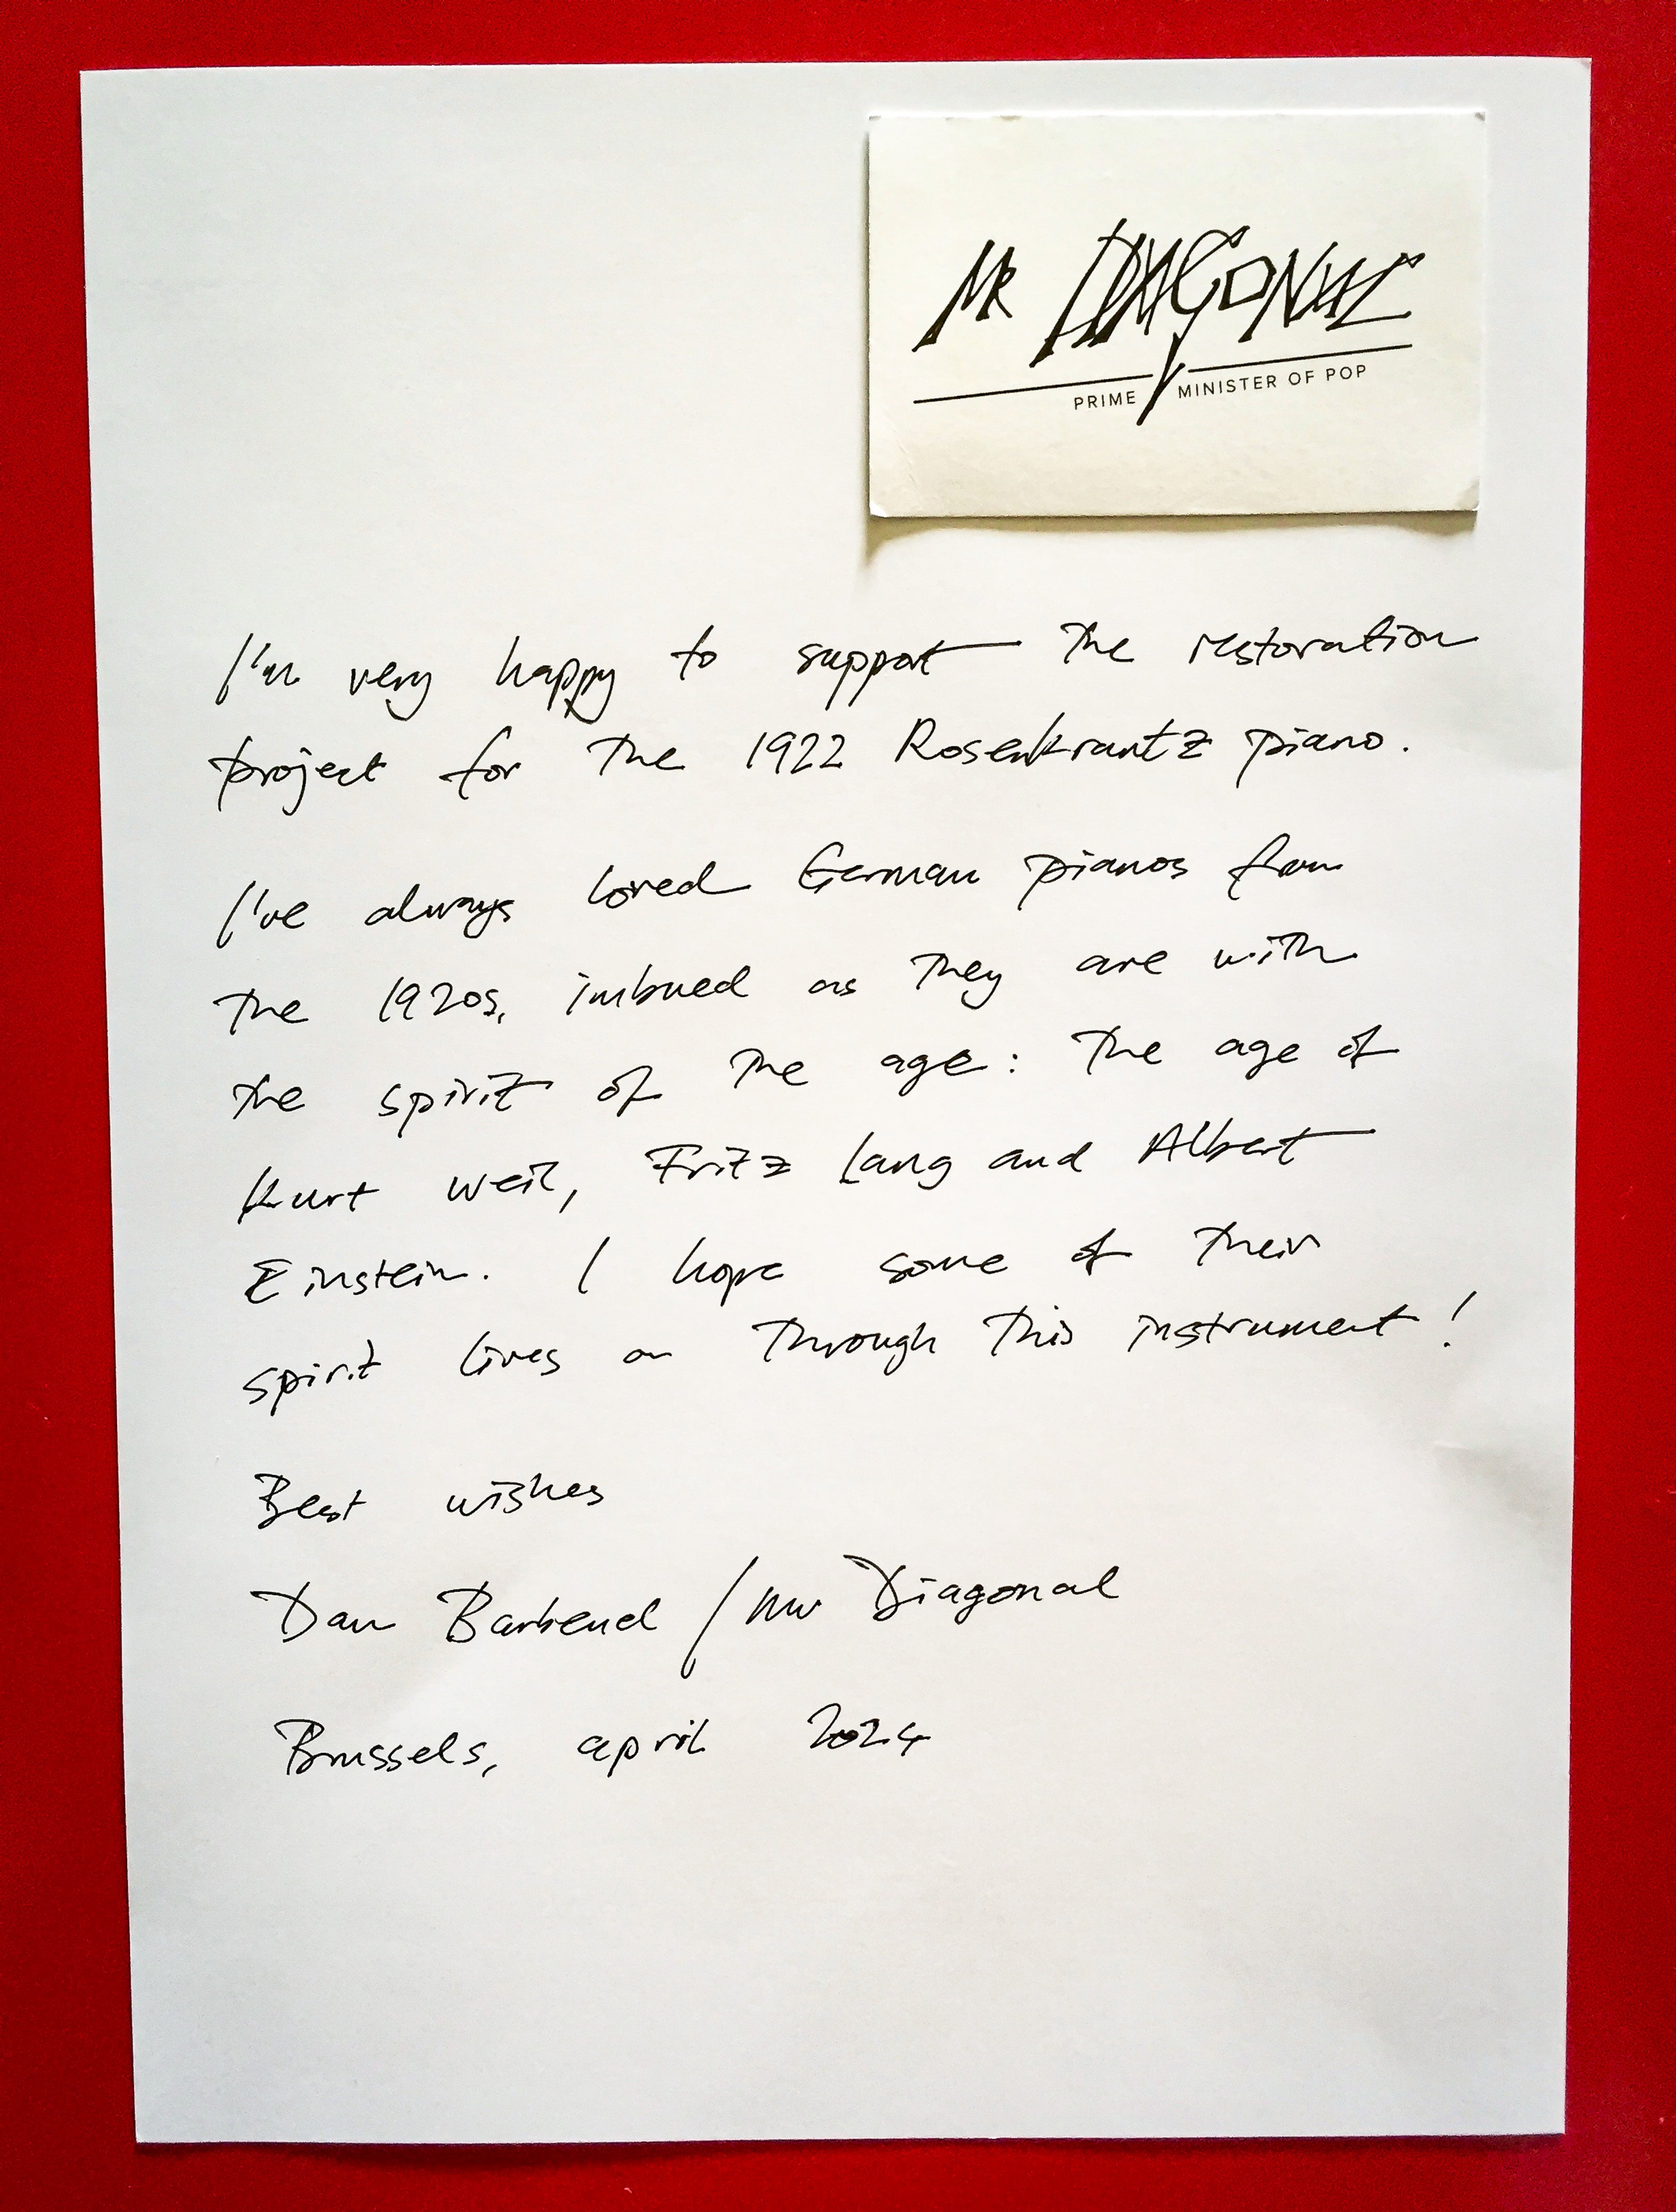 MR DIAGONAL
PRIME MINISTER OF POP
I'm very happy to support the restoration
project for the 1922 Rosenkrantz piano.
I've always loved German pianos from
the 1920s, imbued as they are with
the spirit of the age: the age of
Kurt Weil, Fritz Lang and Albert
Einstein. I hope some of their
spirit lives on through this instrument!
Best wishes
Dan Barbenel / Mr Diagonal
Brussels, april 2024